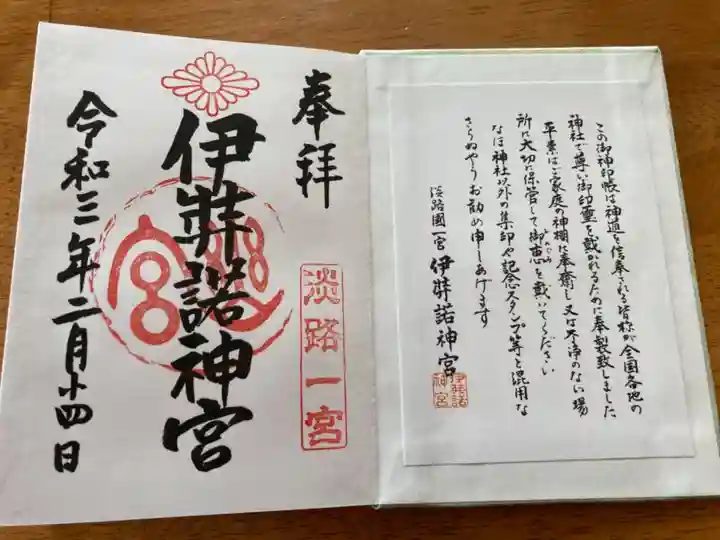 この御神印帳は神道を信奉される皆様が全国各地の
神社で尊い御印璽を戴かれるために奉製致しました
平素はご家庭の神棚に奉齋し又は不浄のない場
所に大切に保管して御恵を戴いてください
なほ神社以外の集印や記念スタンプ等と混用な
さらぬやうお勧め申しあげます
淡路國一宮 伊弉諾神宮
伊弉諾
神宮
奉拝
淡路一宮
伊弉諾神宮
令和三年二月十四日